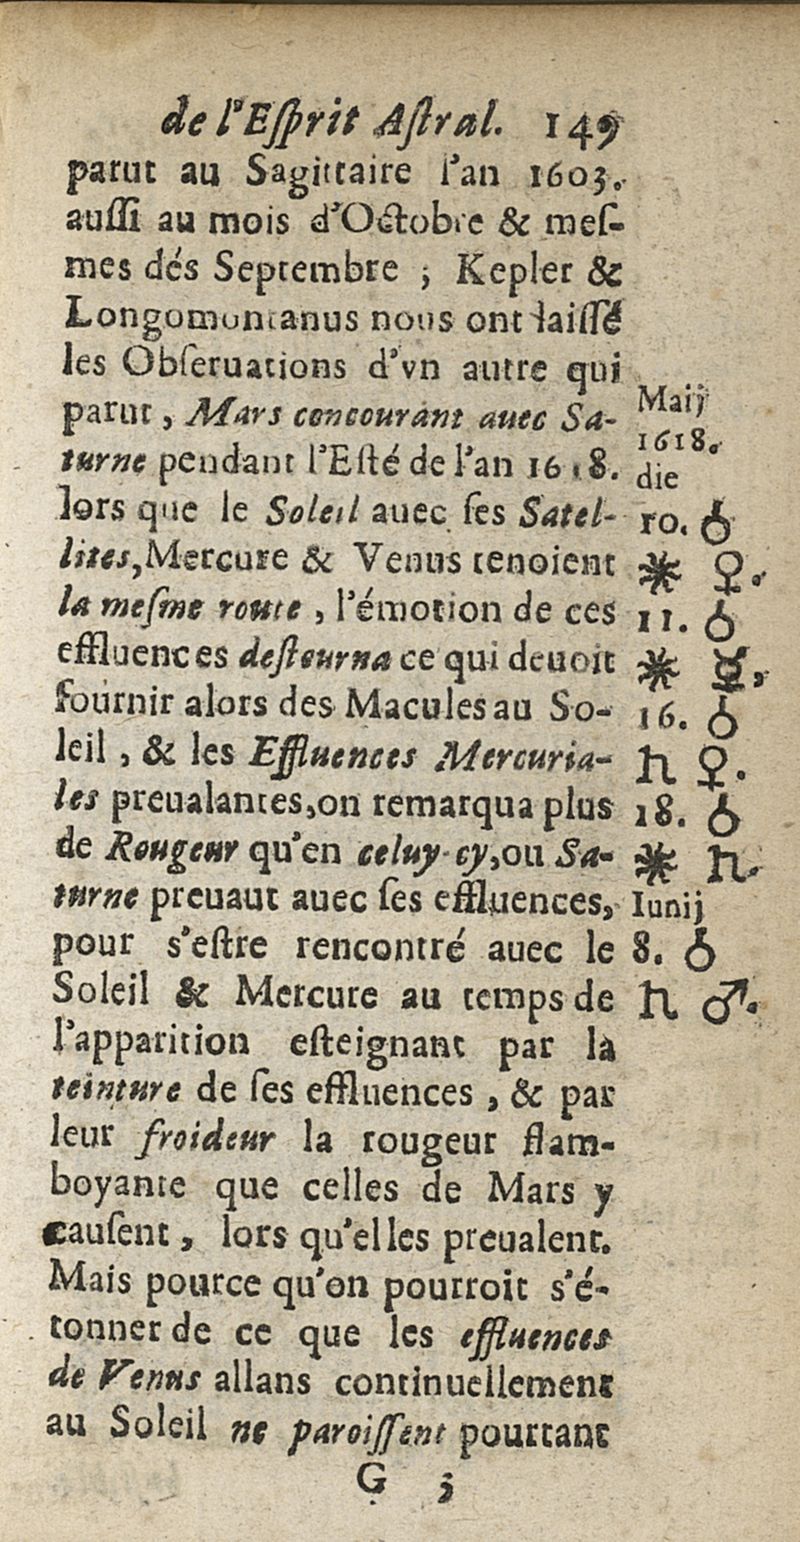 de l'Eſprit Aſtral. 149
parut au Sagittaire l'an 1603.
auſſi au mois d'Octobre & meſ-
mes dés Septembre ; Kepler &
Longomontanus nous ont laiſſé
les Obſeruations d'vn autre qui
parut, Mars concourant auec Sa-
turne pendant l'Eſté de l'an 1618.
lors que le Soleil auec ſes Satel-
lites, Mercure & Venus tenoient
la meſme route, l'émotion de ces
effluences deſtourna ce qui deuoit
fournir alors des Macules au So-
leil, & les Effluences Mercuria-
les preualantes, on remarqua plus
de Rougeur qu'en celuy-cy, ou Sa-
turne preuaut auec ſes effluences,
pour s'eſtre rencontré auec le
Soleil & Mercure au temps de
l'apparition eſteignant par la
teinture de ſes effluences, & par
leur froideur la rougeur flam-
boyante que celles de Mars y
cauſent, lors qu'elles preualent.
Mais pource qu'on pourroit s'é-
tonner de ce que les effluences
de Venus allans continuellement
au Soleil ne paroiſſent pourtant
G 3
Maij
1618.
die
10. ♁
⚹ ♀.
11. ♁
⚹ ☿,
16. ♁
♄ ♀.
18. ♁
⚹ ♄.
Iunij
8. ♁
♄ ♂.